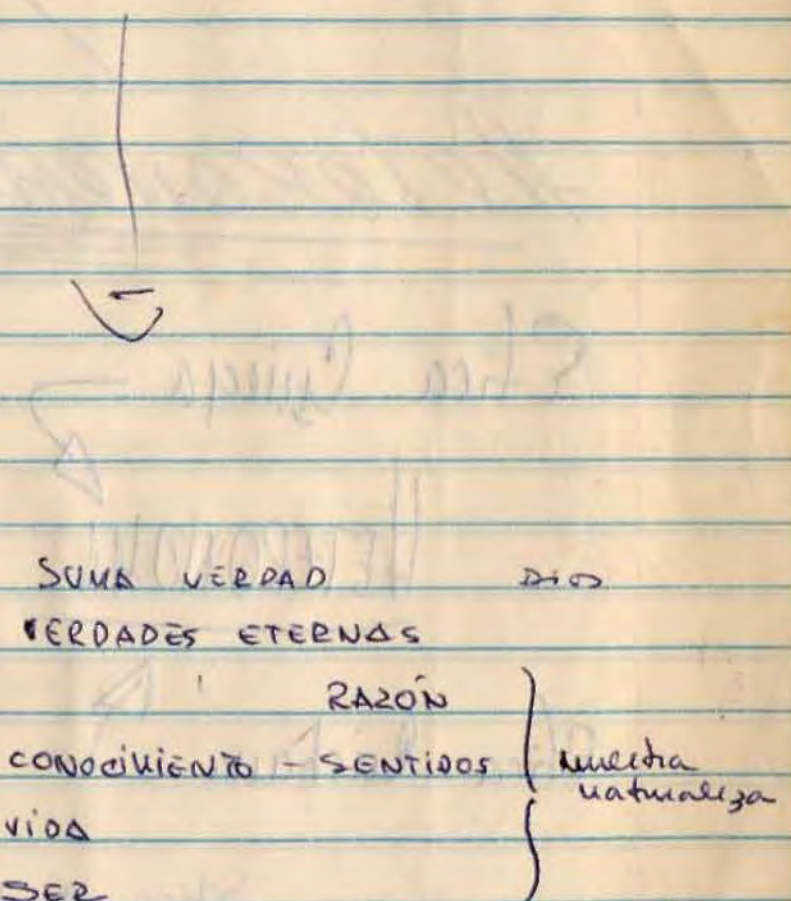 SUMA VERDAD DIOS
VERDADES ETERNAS
RAZÓN
CONOCIMIENTO - SENTIDOS nuestra
naturaleza
VIDA
SER